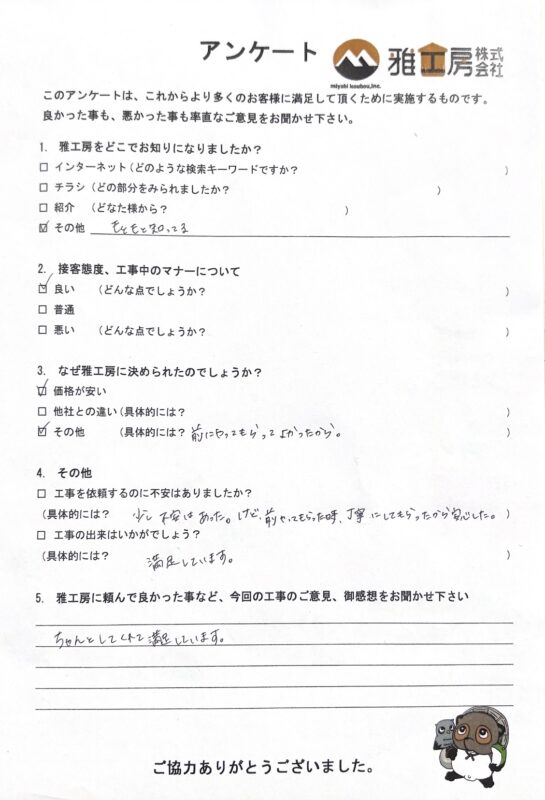 アンケート
雅工房 株式会社
miyabi koubou,inc.
このアンケートは、これからより多くのお客様に満足して頂くために実施するものです。
良かった事も、悪かった事も率直なご意見をお聞かせ下さい。
1. 雅工房をどこでお知りになりましたか？
□ インターネット（どのような検索キーワードですか？ ）
□ チラシ（どの部分をみられましたか？ ）
□ 紹介 （どなた様から？ ）
☑ その他 もともと知ってる
2. 接客態度、工事中のマナーについて
☑ 良い （どんな点でしょうか？ ）
□ 普通
□ 悪い （どんな点でしょうか？ ）
3. なぜ雅工房に決められたのでしょうか？
☑ 価格が安い
□ 他社との違い（具体的には？ ）
☑ その他 （具体的には？ 前にやってもらってよかったから。 ）
4. その他
□ 工事を依頼するのに不安はありましたか？
（具体的には？ 少し不安はあった。けど、前やってもらった時、丁寧にしてもらったから安心した。 ）
□ 工事の出来はいかがでしょう？
（具体的には？ 満足しています。 ）
5. 雅工房に頼んで良かった事など、今回の工事のご意見、御感想をお聞かせ下さい
ちゃんとしてくれて満足しています。
ご協力ありがとうございました。